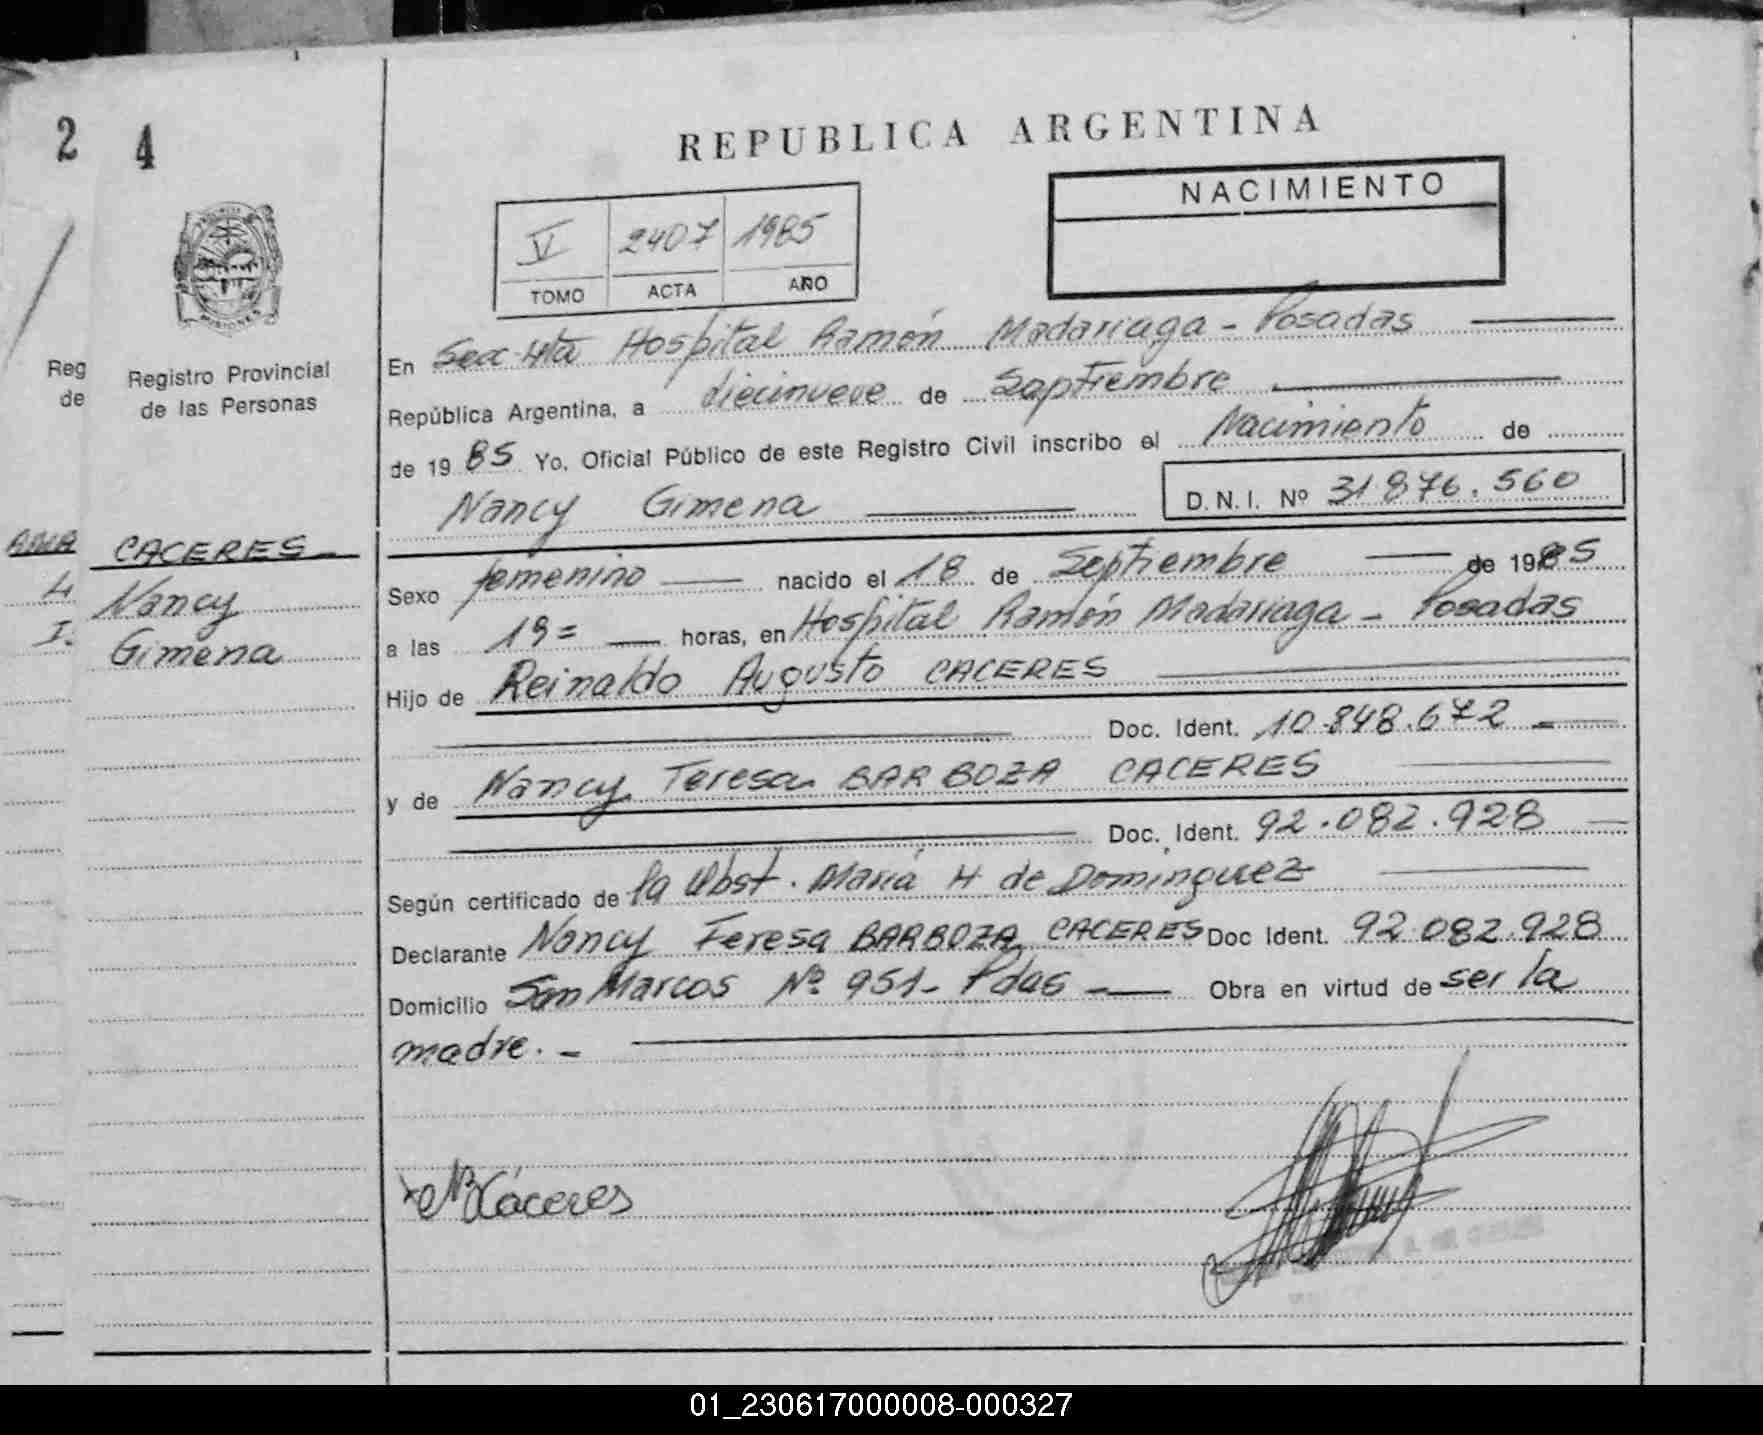 2 4
REPUBLICA ARGENTINA
NACIMIENTO
V 2407 1985
TOMO ACTA AÑO
PROVINCIA
MISIONES
Reg
de
Registro Provincial
de las Personas
En Sec. 4ta Hospital Ramón Madariaga - Posadas
República Argentina, a diecinueve de Septiembre
de 19 85 Yo, Oficial Público de este Registro Civil inscribo el Nacimiento de
Nancy Gimena D.N.I. Nº 31.876.560
CACERES
Nancy
Gimena
Sexo femenino nacido el 18 de Septiembre de 1985
a las 19= horas, en Hospital Ramón Madariaga - Posadas
Hijo de Reinaldo Augusto CACERES
Doc. Ident. 10.848.672
y de Nancy Teresa BARBOZA CACERES
Doc. Ident. 92.082.928
Según certificado de la Obst. María H de Dominguez
Declarante Nancy Teresa BARBOZA CACERES Doc Ident. 92.082.928
Domicilio San Marcos Nº 951- Pdas - Obra en virtud de ser la
madre. -
Cáceres
01_230617000008-000327